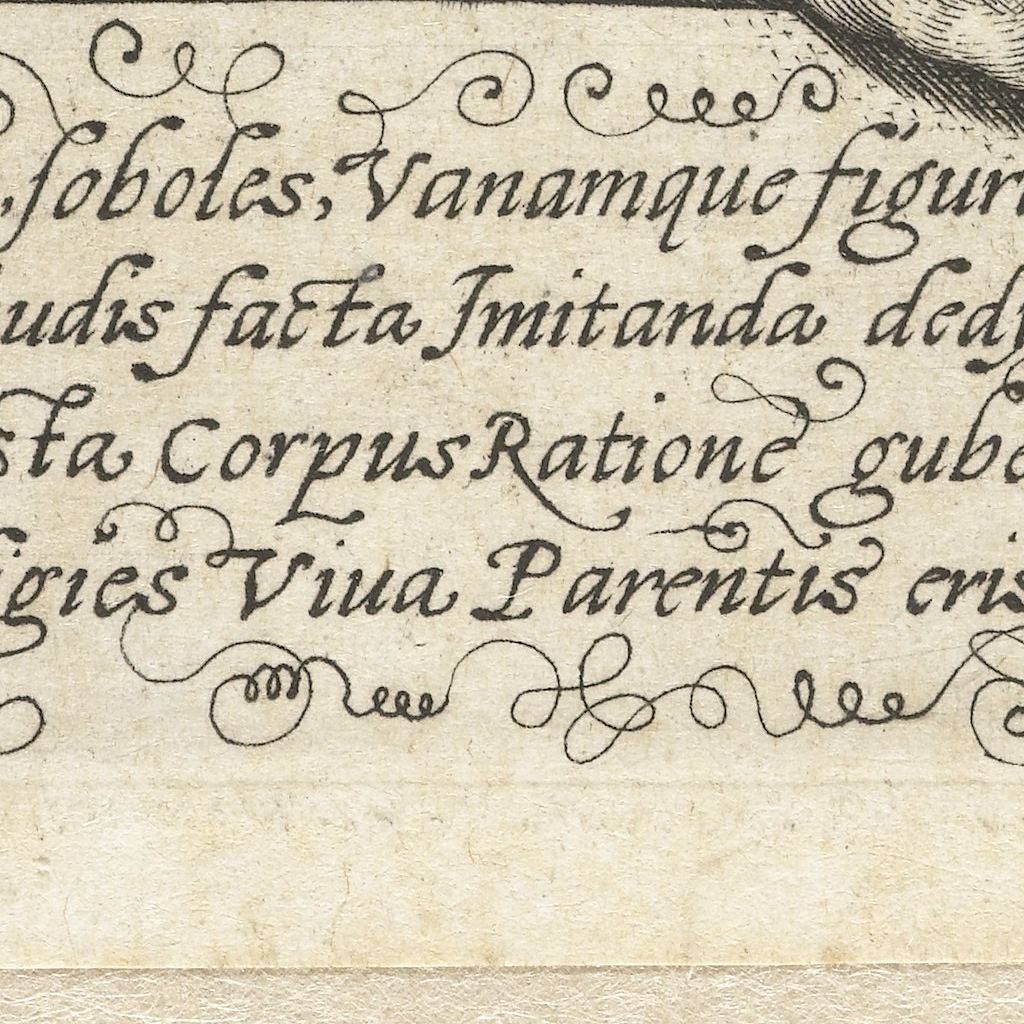 , soboles, Vanamque figur
udis facta Imitanda ded
sta Corpus Ratione gube
igies Viua Parentis eris